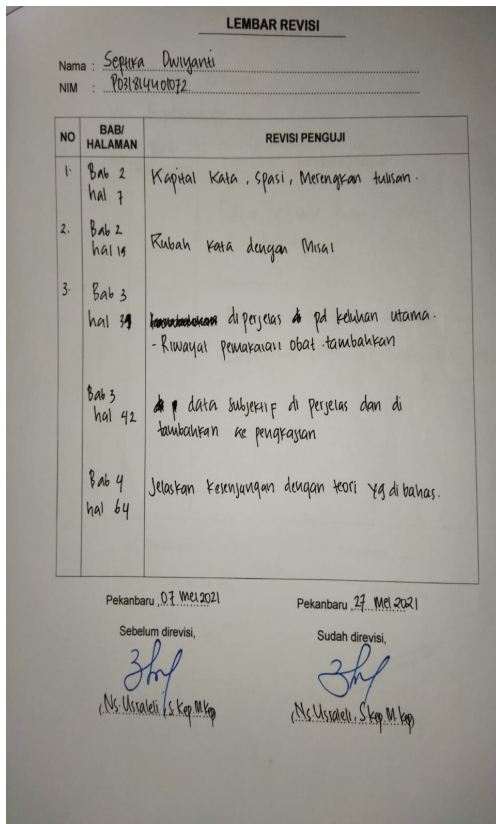 LEMBAR REVISI
Nama : Septika Dwiyanti
NIM : P031814401072
NO BAB/HALAMAN REVISI PENGUJI
1. Bab 2 Kapital Kata, Spasi, Merengkan tulisan.
hal 7
2. Bab 2
hal 19 Rubah Kata dengan Misal
3. Bab 3
hal 39 diperjelas pd keluhan utama.
- Riwayat pemakaian obat tambahkan
Bab 3
hal 42 data subjektif di perjelas dan di
tambahkan ke pengkajian
Bab 4 Jelaskan Kesenjangan dengan teori yg di bahas.
hal 64
Pekanbaru, 07 Mei 2021 Pekanbaru, 27 Mei 2021
Sebelum direvisi, Sudah direvisi,
(Ns. Usraleli, S.Kep, M.Kep (Ns. Usraleli, S.Kep, M.Kep)